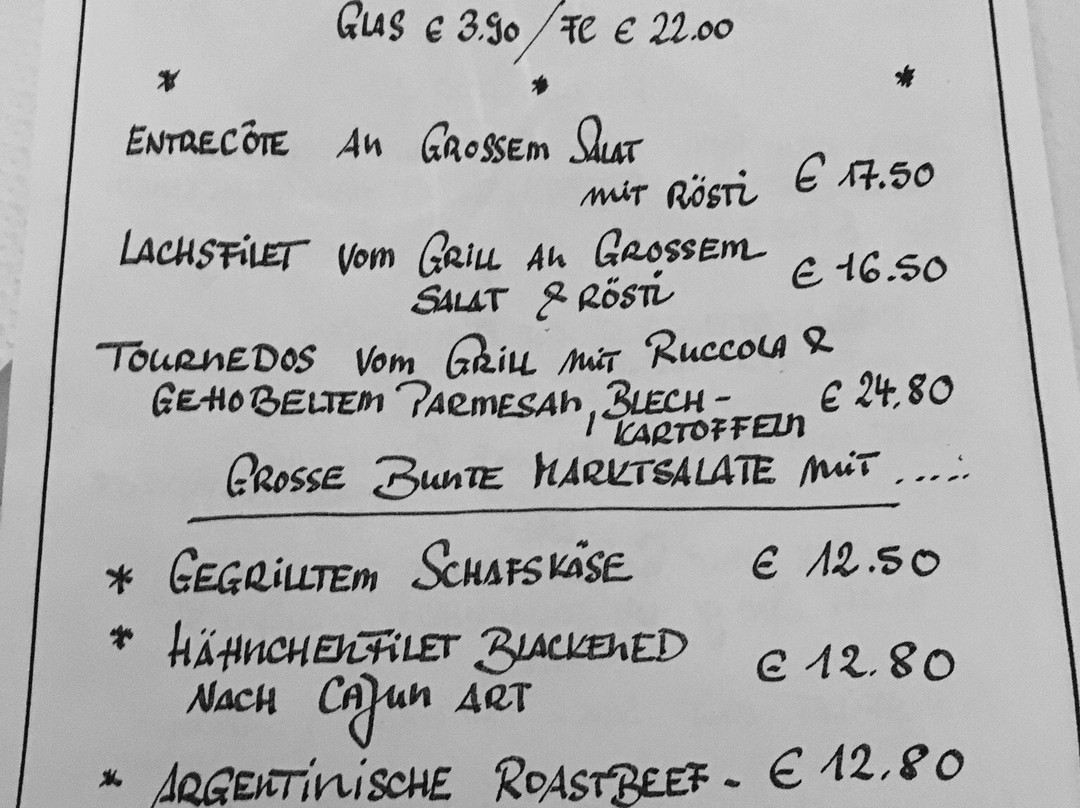 GLAS € 3.90 / FL € 22.00
* * *
ENTRECÔTE AN GROSSEM SALAT
MIT RÖSTI € 17.50
LACHSFILET VOM GRILL AN GROSSEM
SALAT & RÖSTI € 16.50
TOURNEDOS VOM GRILL MIT RUCCOLA &
GEHOBELTEM PARMESAN, BLECH- € 24.80
KARTOFFELN
GROSSE BUNTE MARKTSALATE MIT .....
* GEGRILLTEM SCHAFSKÄSE € 12.50
* HÄHNCHENFILET BLACKENED
NACH CAJUN ART € 12.80
* ARGENTINISCHE ROASTBEEF- € 12.80